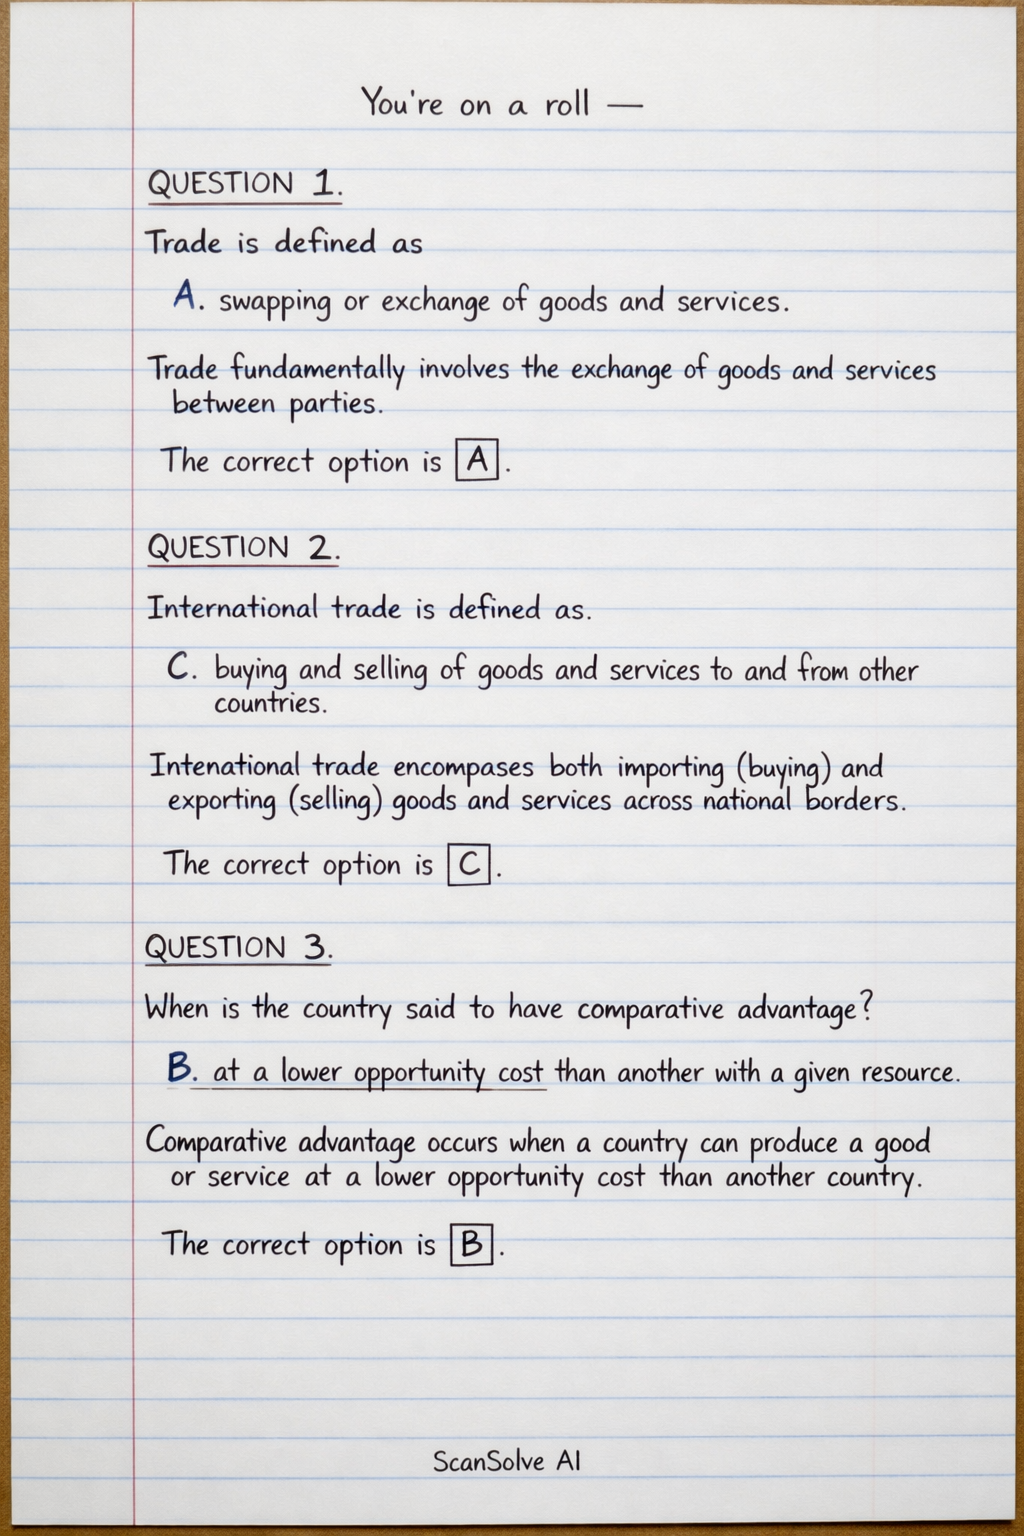 You're on a roll —
QUESTION 1.
Trade is defined as
A. swapping or exchange of goods and services.
Trade fundamentally involves the exchange of goods and services
between parties.
The correct option is A.
QUESTION 2.
International trade is defined as.
C. buying and selling of goods and services to and from other
countries.
Intenational trade encompases both importing (buying) and
exporting (selling) goods and services across national borders.
The correct option is C.
QUESTION 3.
When is the country said to have comparative advantage?
B. at a lower opportunity cost than another with a given resource.
Comparative advantage occurs when a country can produce a good
or service at a lower opportunity cost than another country.
The correct option is B.
ScanSolve AI